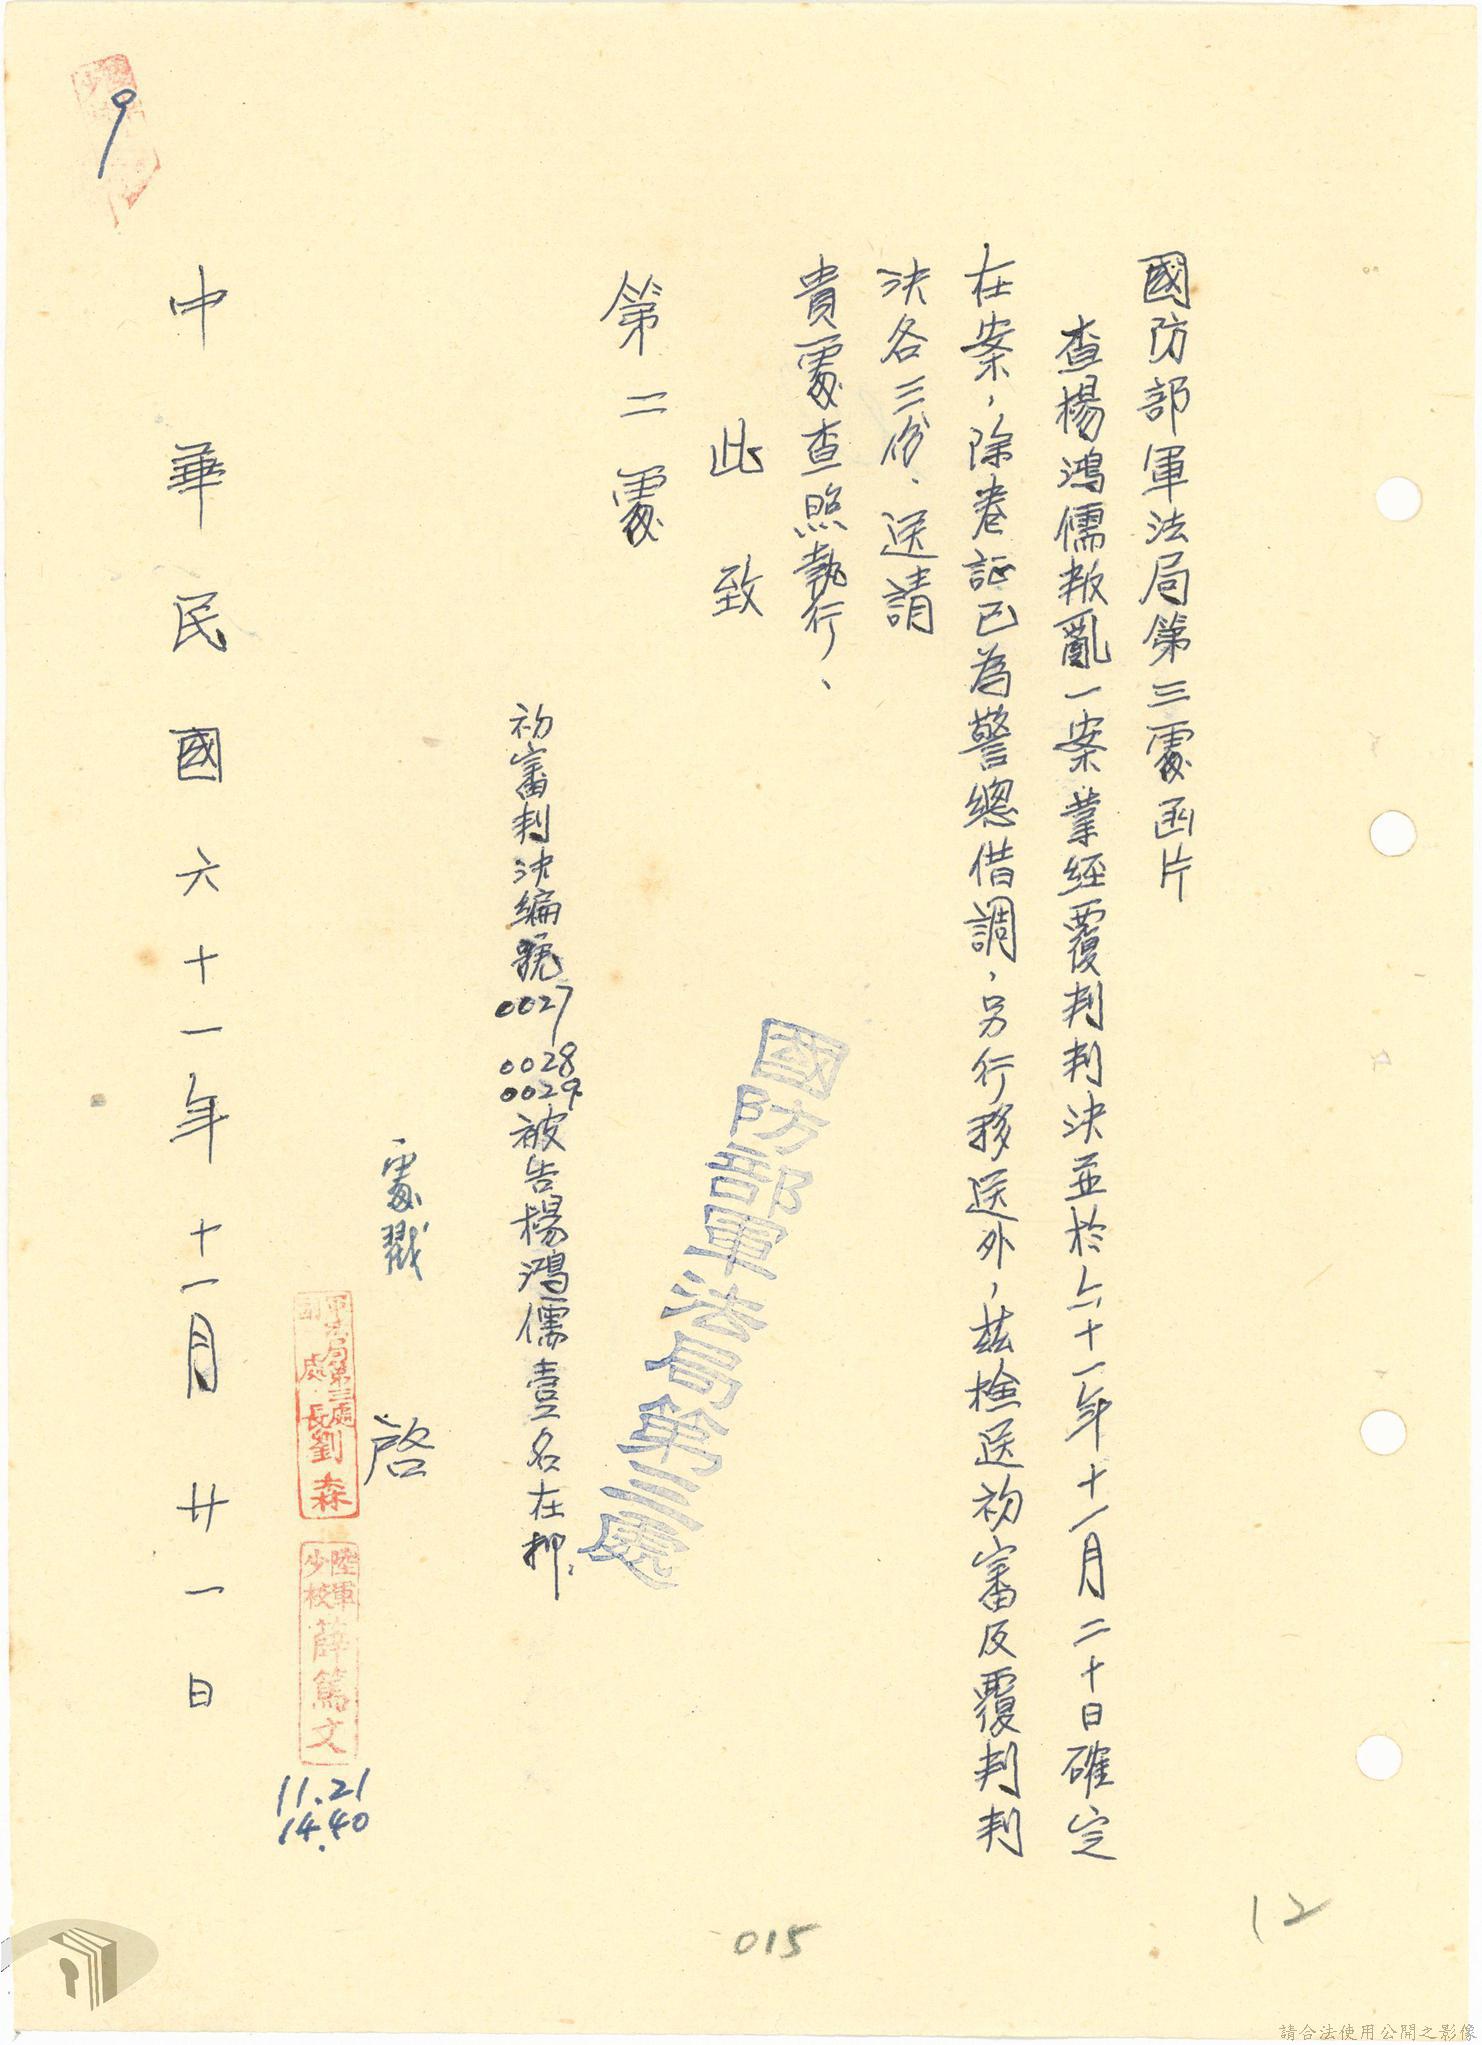 國防部軍法局第三處函片
查楊鴻儒叛亂一案業經覆判判決並於六十一年十一月二十日確定
在案,除卷証已為警總借調,另行移送外,茲檢送初審及覆判判
決各三份、送請
貴處查照執行、
此致
第二處
國防部軍法局第三處
初審判決編號0027
0028
0029
被告楊鴻儒壹名在押.
處戳
啓
軍法局第三處
副處長劉森
陸軍
少校
薛篤文
11.21
14.40
中華民國六十一年十一月廿一日
12
015
請合法使用公開之影像